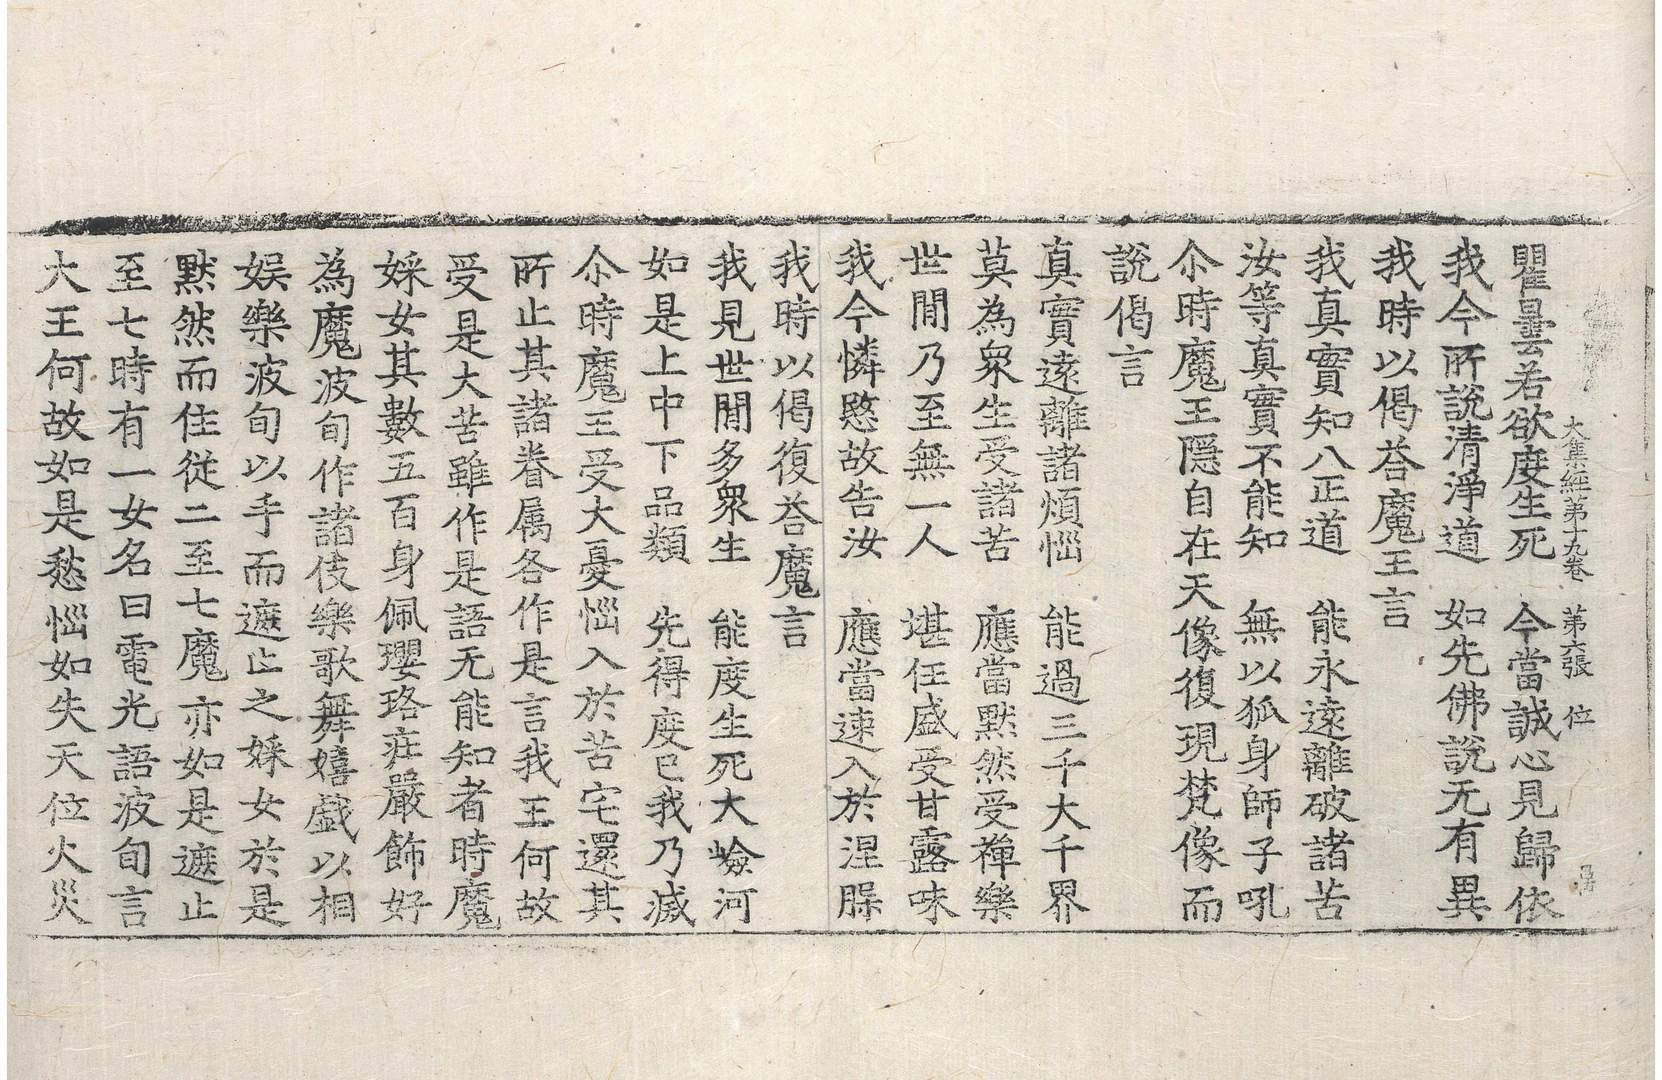 大集經第十九卷　第六張　位
瞿曇若欲度生死　今當誠心見歸依
我今所說清淨道　如先佛說无有異
我時以偈荅魔王言
我真實知八正道　能永遠離破諸苦
汝等真實不能知　無以狐身師子吼
尒時魔王隱自在天像復現梵像而
說偈言
真實遠離諸煩惱　能過三千大千界
莫為衆生受諸苦　應當默然受禪樂
世閒乃至無一人　堪任盛受甘露味
我今憐愍故告汝　應當速入於涅槃
我時以偈復荅魔言
我見世閒多衆生　能度生死大嶮河
如是上中下品類　先得度已我乃滅
尒時魔王受大憂惱入於苦宅還其
所止其諸眷属各作是言我王何故
受是大苦雖作是語无能知者時魔
婇女其數五百身佩瓔珞莊嚴飾好
為魔波旬作諸伎樂歌舞嬉戲以相
娛樂波旬以手而遮止之婇女於是
默然而住從二至七魔亦如是遮止
至七時有一女名曰電光語波旬言
大王何故如是愁惱如失天位火災